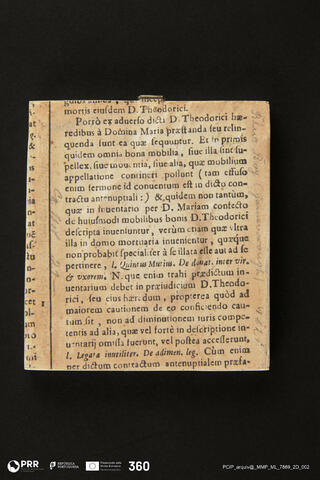 mortis eiusdem D. Theodorici.
Porrò ex adverso dicti D. Theodorici hæ-
redibus à Domina Maria præstanda seu relin-
quenda sunt ea quæ sequuntur. Et in primis
quidem omnia bona mobilia, sive illa sint su-
pellex, sive moventia, sive alia, quæ mobilium
appellatione contineri possunt (tam effuso
enim sermone id conventum est in dicto con-
tractu antenuptiali:) & quidem non tantùm,
quæ in inventario per D. Mariam confecto
de huiusmodi mobilibus bonis D. Theodorici
descripta inveniuntur, verùm etiam quæ ultra
illa in domo mortuaria invenientur, quæque
non probabit specialiter à se illata esse aut ad se
pertinere, l. Quintus Mutius. De donat. inter vir.
& uxorem. Neque enim trahi prædictum in-
ventarium debet in præiudicium D. Theodo-
rici, seu eius hæredum, propterea quòd ad
maiorem cautionem de eo conficiendo cau-
tum sit, non ad diminutionem iuris compe-
tentis ad alia, quæ vel fortè in descriptione in-
ventarij omissa fuerunt, vel postea accesserunt,
l. Legata inutiliter. De adimen. leg. Cùm enim
per dictum contractum antenuptialem præfa-
PRR
REPÚBLICA PORTUGUESA
360
PC/P_arquiv@_MMP_ML_7869_2D_002